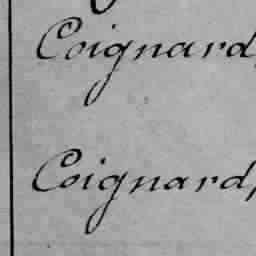 Coignard,
Coignard,